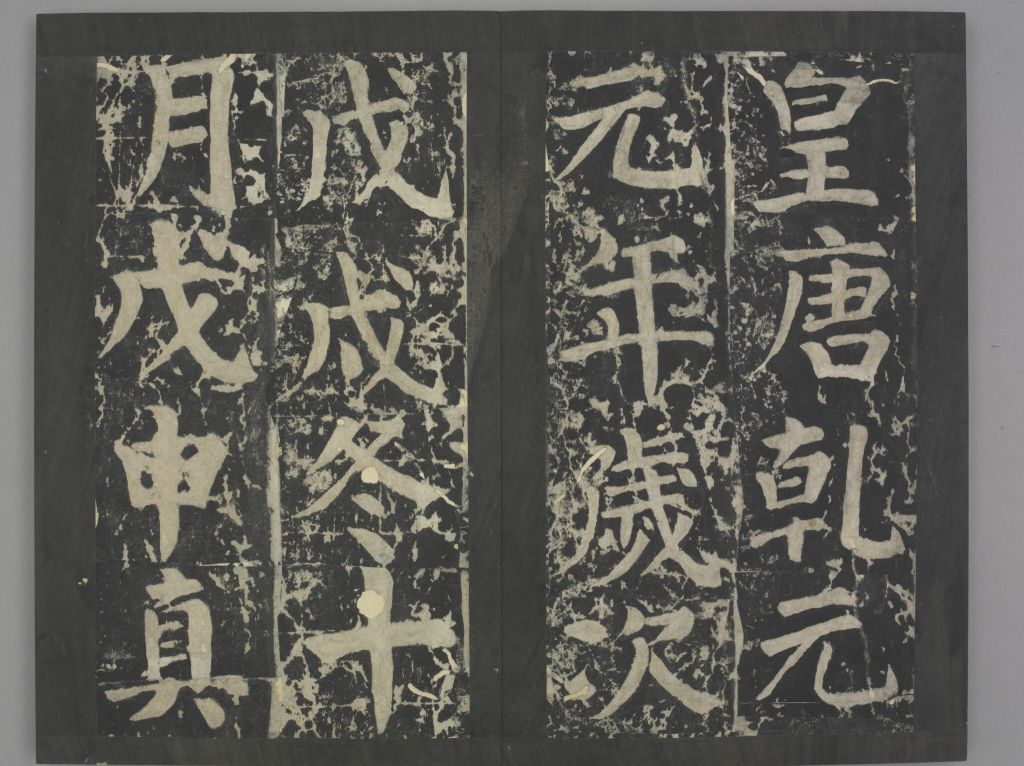 皇唐乹元
元年歲次
戊戌冬十
月戊申真